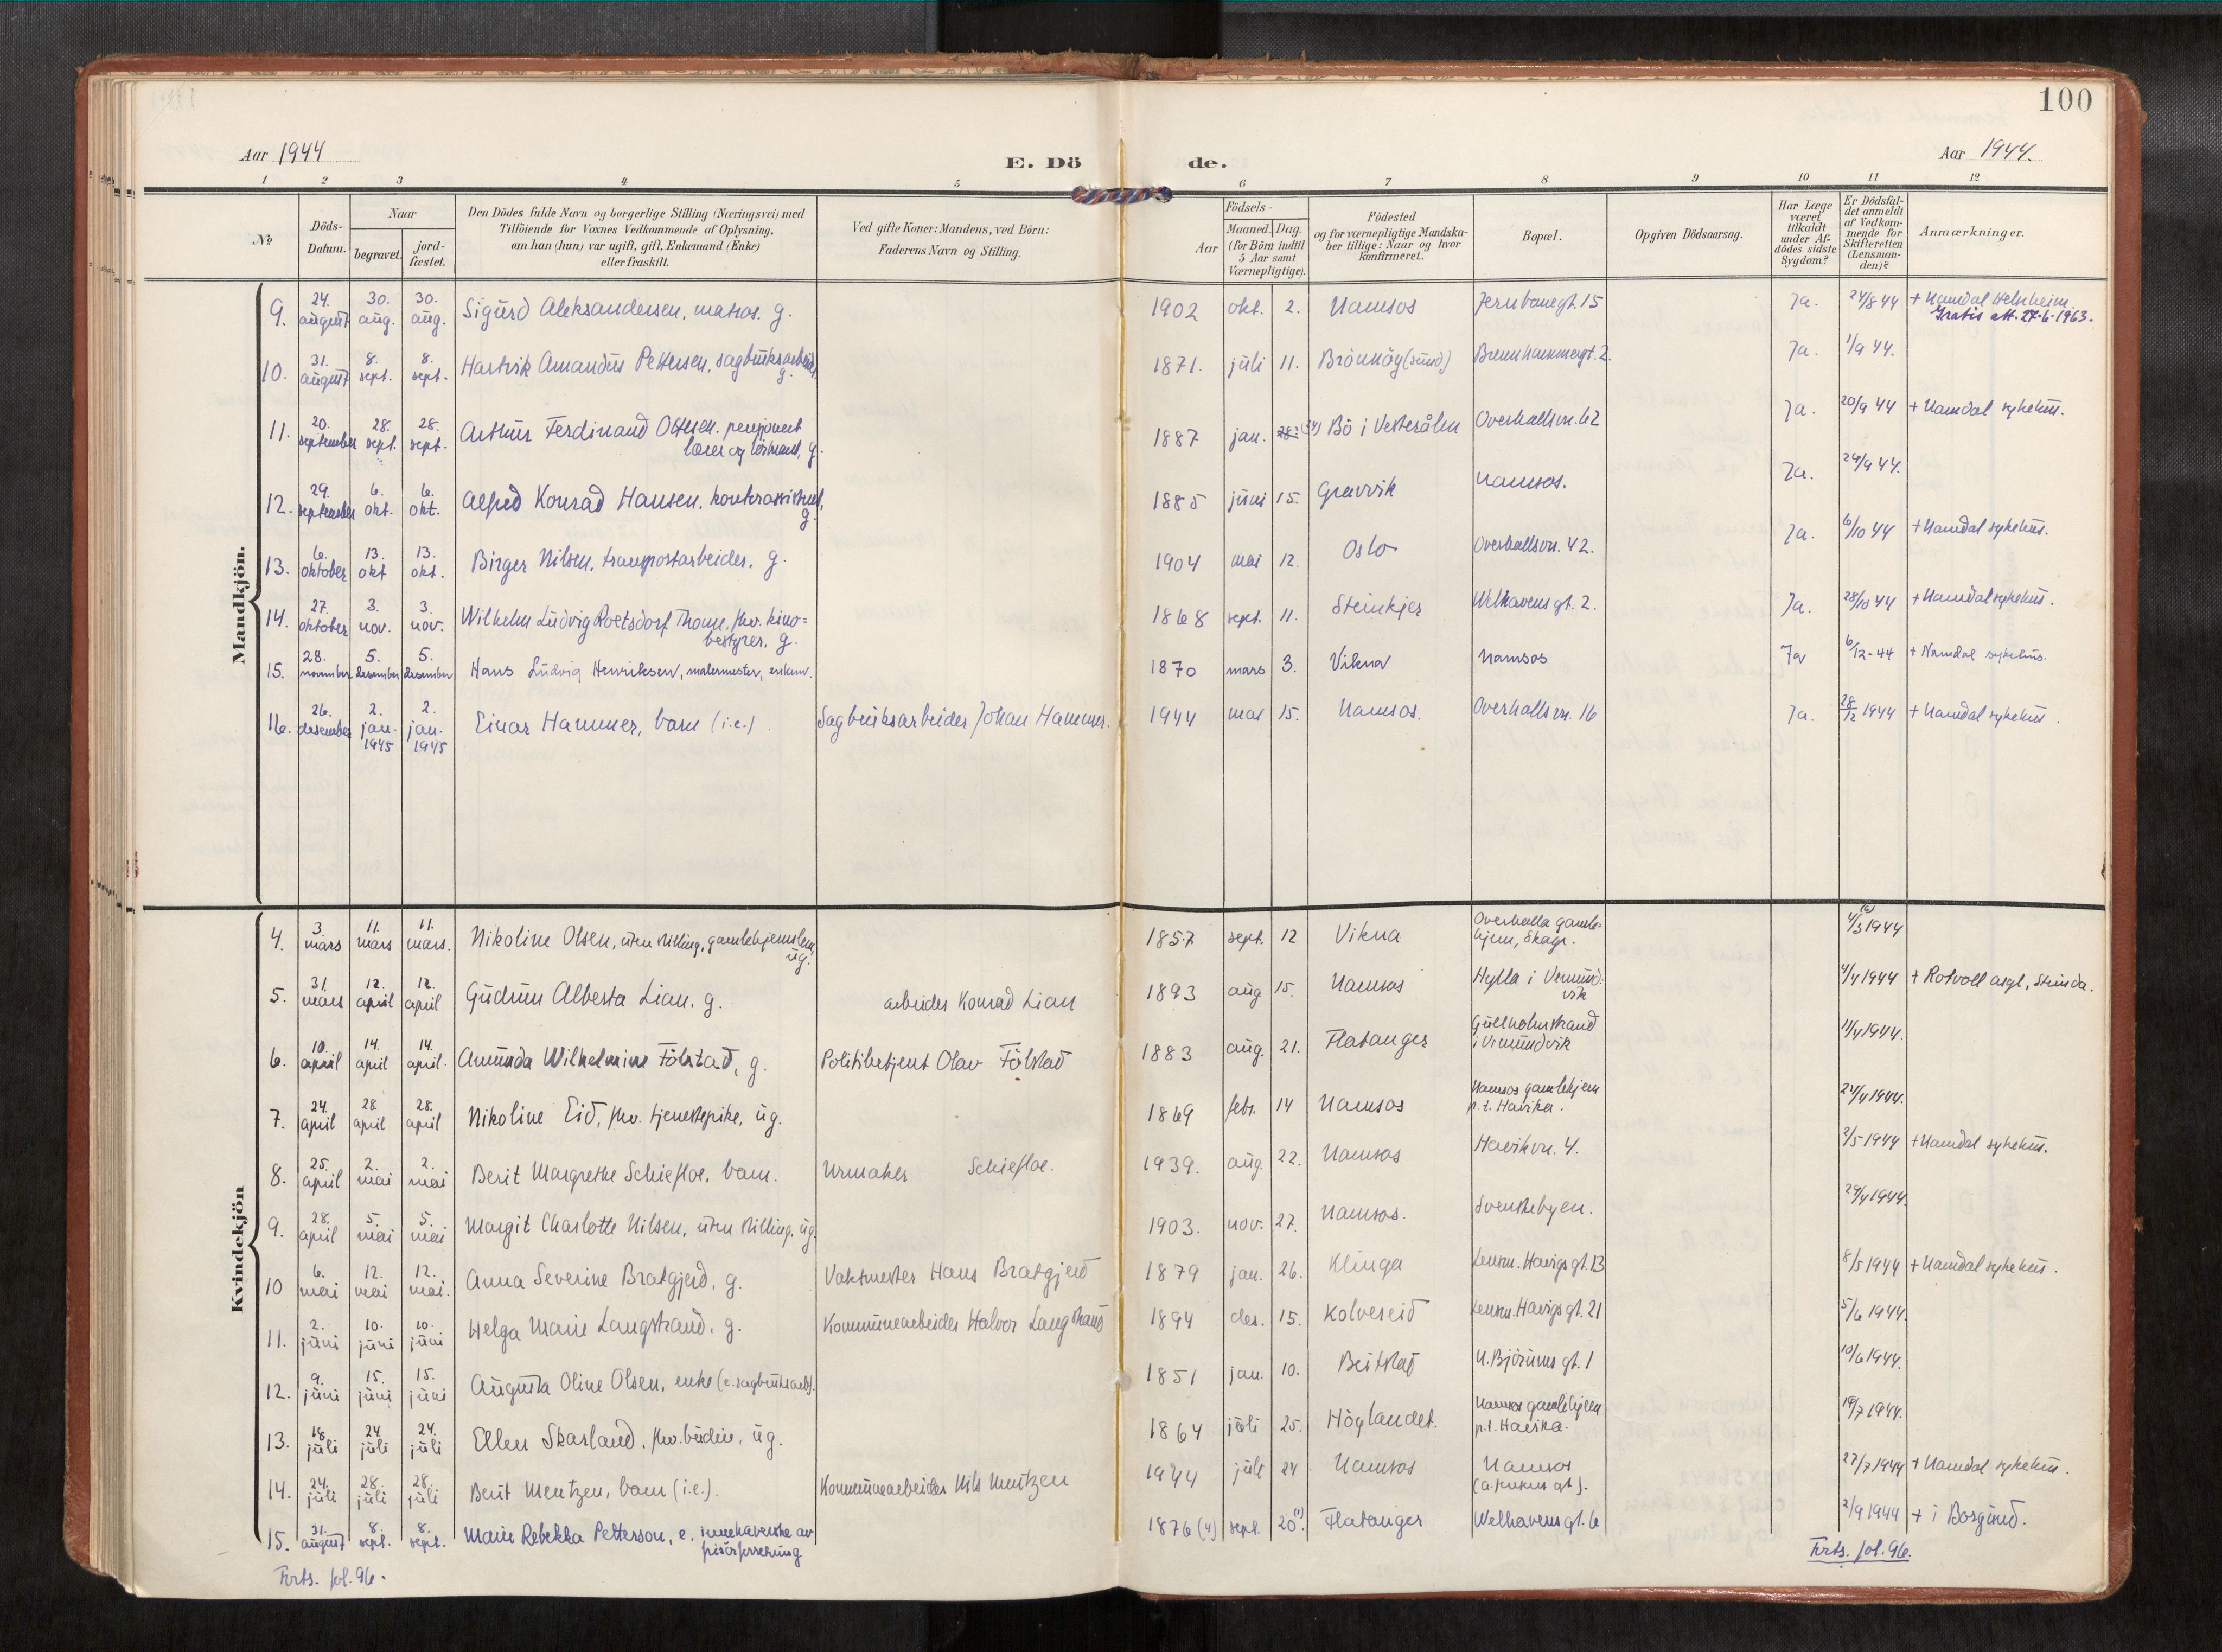 100
Aar 1944
E. Dö
de.
Aar 1944.
1 2 3 4 5 6 7 8 9 10 11 12
No
Döds-Datum.
Naar
begravet.
jord-fæstet.
Den Dödes fulde Navn og borgerlige Stilling (Næringsvei) med
Tilföiende for Voxnes Vedkommende af Oplysning,
om han (hun) var ugift, gift, Enkemand (Enke)
eller fraskilt.
Ved gifte Koner: Mandens, ved Börn:
Faderens Navn og Stilling.
Födsels-
Aar
Maaned. Dag.
(for Börn indtil
5 Aar samt
Værnepligtige).
Födested
og for værnepligtige Mandska-
ber tillige: Naar og hvor
konfirmeret.
Bopæl.
Opgiven Dödsaarsag.
Har Læge
været
tilkaldt
under Af-
dödes sidste
Sygdom?
Er Dödsfal-
det anmeldt
af Vedkom-
mende for
Skifteretten
(Lensman-
den)?
Anmærkninger.
Mandkjön.
9. 24. august 30. aug. 30. aug. Sigurd Aleksandersen, matros. g. 1902 okt. 2. Namsos Jernbanegt. 15 Ja. 24/8 44 + Namdal
Gratis att. 27-6-1963.
10. 31. august 8. sept. 8. sept. Hartvik Amandus Pettersen, sagbruksarbeider, g. 1871. juli 11. Brönnöy (sund) gt. 2. Ja. 1/9 44.
11. 20. september 28. sept. 28. sept. Arthur Ferdinand Ottesen. pensjonert
lærer og g. 1887 jan. 28. (24) Bö i Vesterålen Overhallsvn. 62 Ja. 20/9 44 + Namdal sykehus.
12. 29. september 6. okt. 6. okt. Alfred Konrad Hansen, kontorassistent, g. 1885 juni 15. Gravvik Namsos. Ja. 29/9 44.
13. 6. oktober 13. okt 13. okt. Birger Nilsen, transportarbeider, g. 1904 mai 12. Oslo Overhallsvn. 42. Ja. 6/10 44 + Namdal sykehus.
14. 27. oktober 3. nov. 3. nov. Wilhelm Ludvig Roetsdorf Thom, fhv. kino=
bestyrer, g. 1868 sept. 11. Steinkjer Welhavens gt. 2. Ja. 28/10 44 + Namdal sykehus.
15. 28. november 5. desember 5. desember Hans Ludvig Henriksen, malermester, enkem. 1870 mars 3. Vikna Namsos Ja 6/12-44 + Namdal sykehus.
16. 26. desember 2. jan. 1945 2. jan. 1945 Einar Hammer, barn (i.e.) Sagbruksarbeider Johan Hammer. 1944 mai 15. Namsos. Overhallsvn. 16 Ja. 28/12 1944 + Namdal sykehus.
Kvindekjön
4. 3. mars 11. mars 11. mars. Nikoline Olsen, uten stilling, gamlehjemslem, ug. 1857 sept. 12 Vikna Overhalla gamle-
hjem, Skage. 4/3 1944
5. 31. mars 12. april 12. april Gudrun Alberta Lian, g. arbeider Konrad Lian 1893 aug 15. Namsos Hylla i Vemund-
vik 4/4 1944 + Rotvoll asyl, Strinda.
6. 10. april 14. april 14. april. Amunda Wilhelmine Fölstad, g. Politibetjent Olav Fölstad 1883 aug. 21. Flatanger Gullholmstrand
i Vemundvik 11/4 1944.
7. 24. april 28 april 28. april Nikoline Eid, fhv. tjenestepike, ug. 1869 febr. 14 Namsos Namsos gamlehjem
p.t. Havika. 24/4 1944.
8. 25. april 2. mai 2. mai Berit Margrethe Schiefloe, barn. Urmaker Schiefloe. 1939. aug. 22. Namsos Havikvn. 4. 2/5 1944 + Namdal sykehus.
9. 28. april 5. mai 5. mai Margit Charlotte Nilsen, uten stilling, ug. 1903. nov. 27. Namsos. Svenskebyen. 29/4 1944.
10 6. mai 12. mai 12. mai. Anna Severine Bratgjerd, g. Vaktmester Hans Bratgjerd 1879 jan. 26. Klinga Lensm. Havigs gt. 13 8/5 1944 + Namdal sykehus.
11. 2. juni 10. juni 10. juni Helga Marie Langstrand, g. Kommunearbeider Halvor Langstrand 1894 des. 15. Kolvereid Lensm. Havigs gt. 21 5/6 1944.
12. 9. juni 15. juni 15. juni Augusta Oline Olsen, enke (e. sagbruksarb). 1851 jan. 10. Beitstad N. Björums gt. 1 10/6 1944.
13. 18. juli 24. juli 24. juli Ellen Skarland, fhv. budeie, ug. 1864 juli 25. Höylandet. Namsos gamlehjem
p.t. Havika. 19/7 1944.
14. 24. juli 28. juli 28. juli Berit Mentzen, barn (i.e.). Kommunearbeider Nils Mentzen 1944 juli 24 Namsos Namsos 27/7 1944 + Namdal sykehus.
15. 31. august 8. sept. 8. sept. Marie Rebekka Petterson, e. innehaverske av
frisörforretning 1876 (4) sept. 20. (1) Flatanger Welhavens gt. 6 2/9 1944 + i Borgund.
Forts. fol. 96.
Forts. fol. 96.